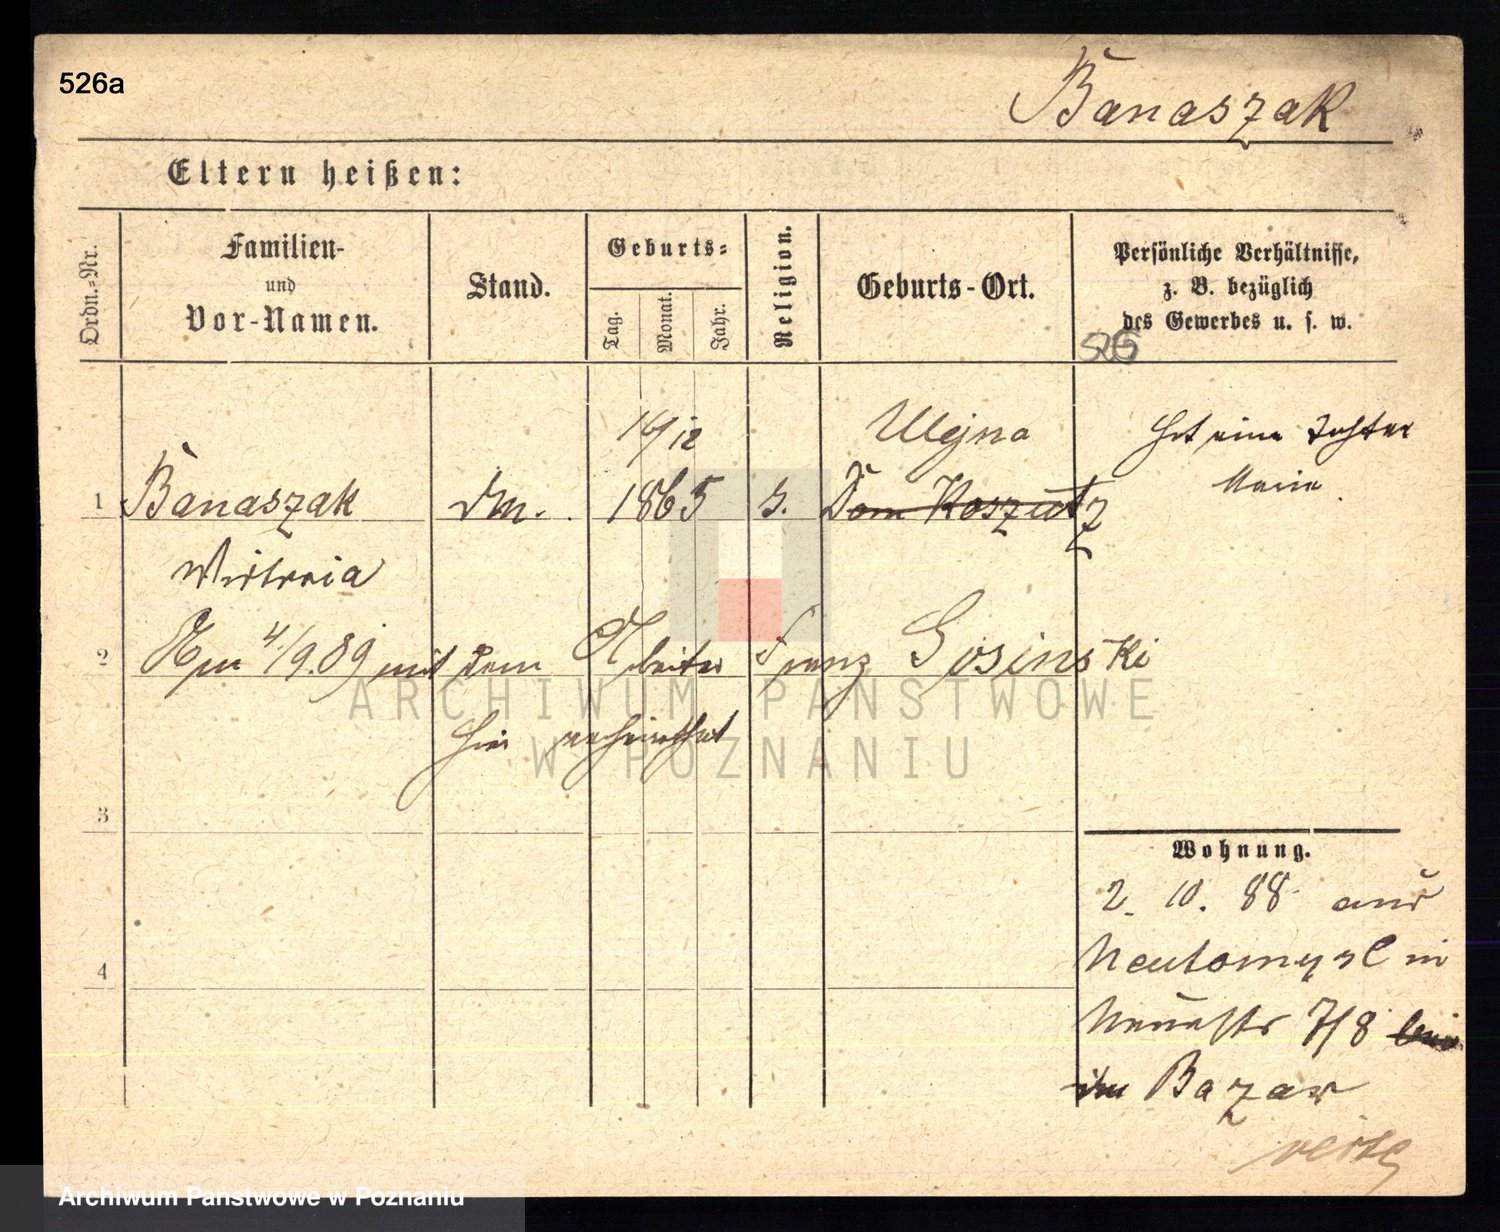 526a
Banaszak
Eltern heißen:
Ordn.-Nr.
Familien-
und
Vor-Namen.
Stand.
Geburts-
Tag.
Monat.
Jahr.
Religion.
Geburts-Ort.
Persönliche Verhältnisse,
z. B. bezüglich
des Gewerbes u. s. w.
526
1
Banaszak
Wiktoria
1865
Dom Koszutz
Hat eine Tochter
Marie.
2
Am 4/9.89 mit dem Arbeiter Franz Gosinski
hier verheirathet
3
4
Wohnung.
2. 10. 88 aus
Neutomysl in
Neuestr 7/8
im Bazar
ARCHIWUM PAŃSTWOWE
W POZNANIU
Archiwum Państwowe w Poznaniu